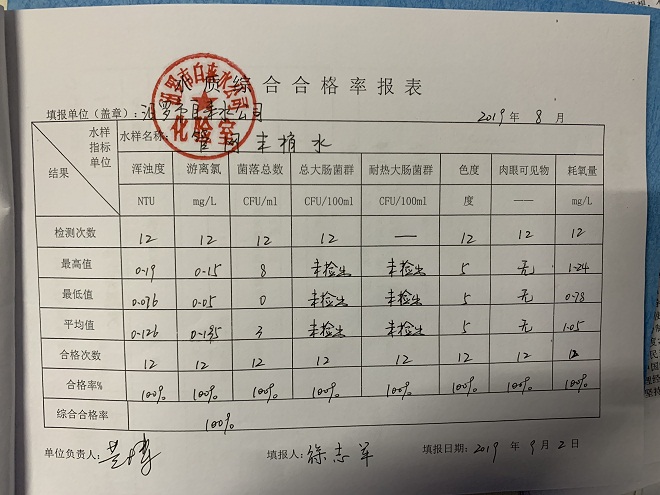 水质综合合格率报表
填报单位（盖章）：汨罗市自来水公司 2019 年 8 月
汨罗市自来水公司
化验室
水样 水样名称： 管网末梢水
指标
单位
结果
浑浊度 游离氯 菌落总数 总大肠菌群 耐热大肠菌群 色度 肉眼可见物 耗氧量
NTU mg/L CFU/ml CFU/100ml CFU/100ml 度 —— mg/L
检测次数 12 12 12 12 — 12 12 12
最高值 0.19 0.15 8 未检出 未检出 5 无 1.24
最低值 0.076 0.05 0 未检出 未检出 5 无 0.78
平均值 0.126 3 未检出 未检出 5 无 1.05
合格次数 12 12 12 12 12 12 12 12
合格率% 100% 100% 100% 100% 100% 100% 100% 100%
综合合格率 100%
单位负责人： 填报人： 徐志军 填报日期：2019 年 9 月 2 日